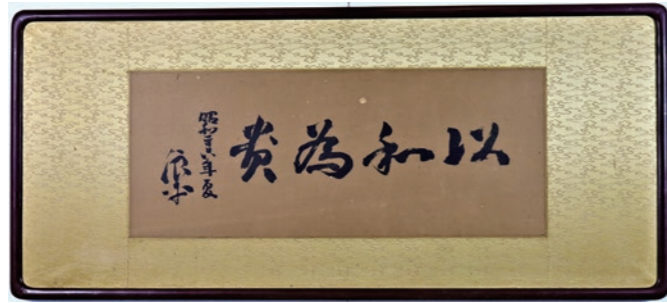 以和為貴
昭和三十六年夏